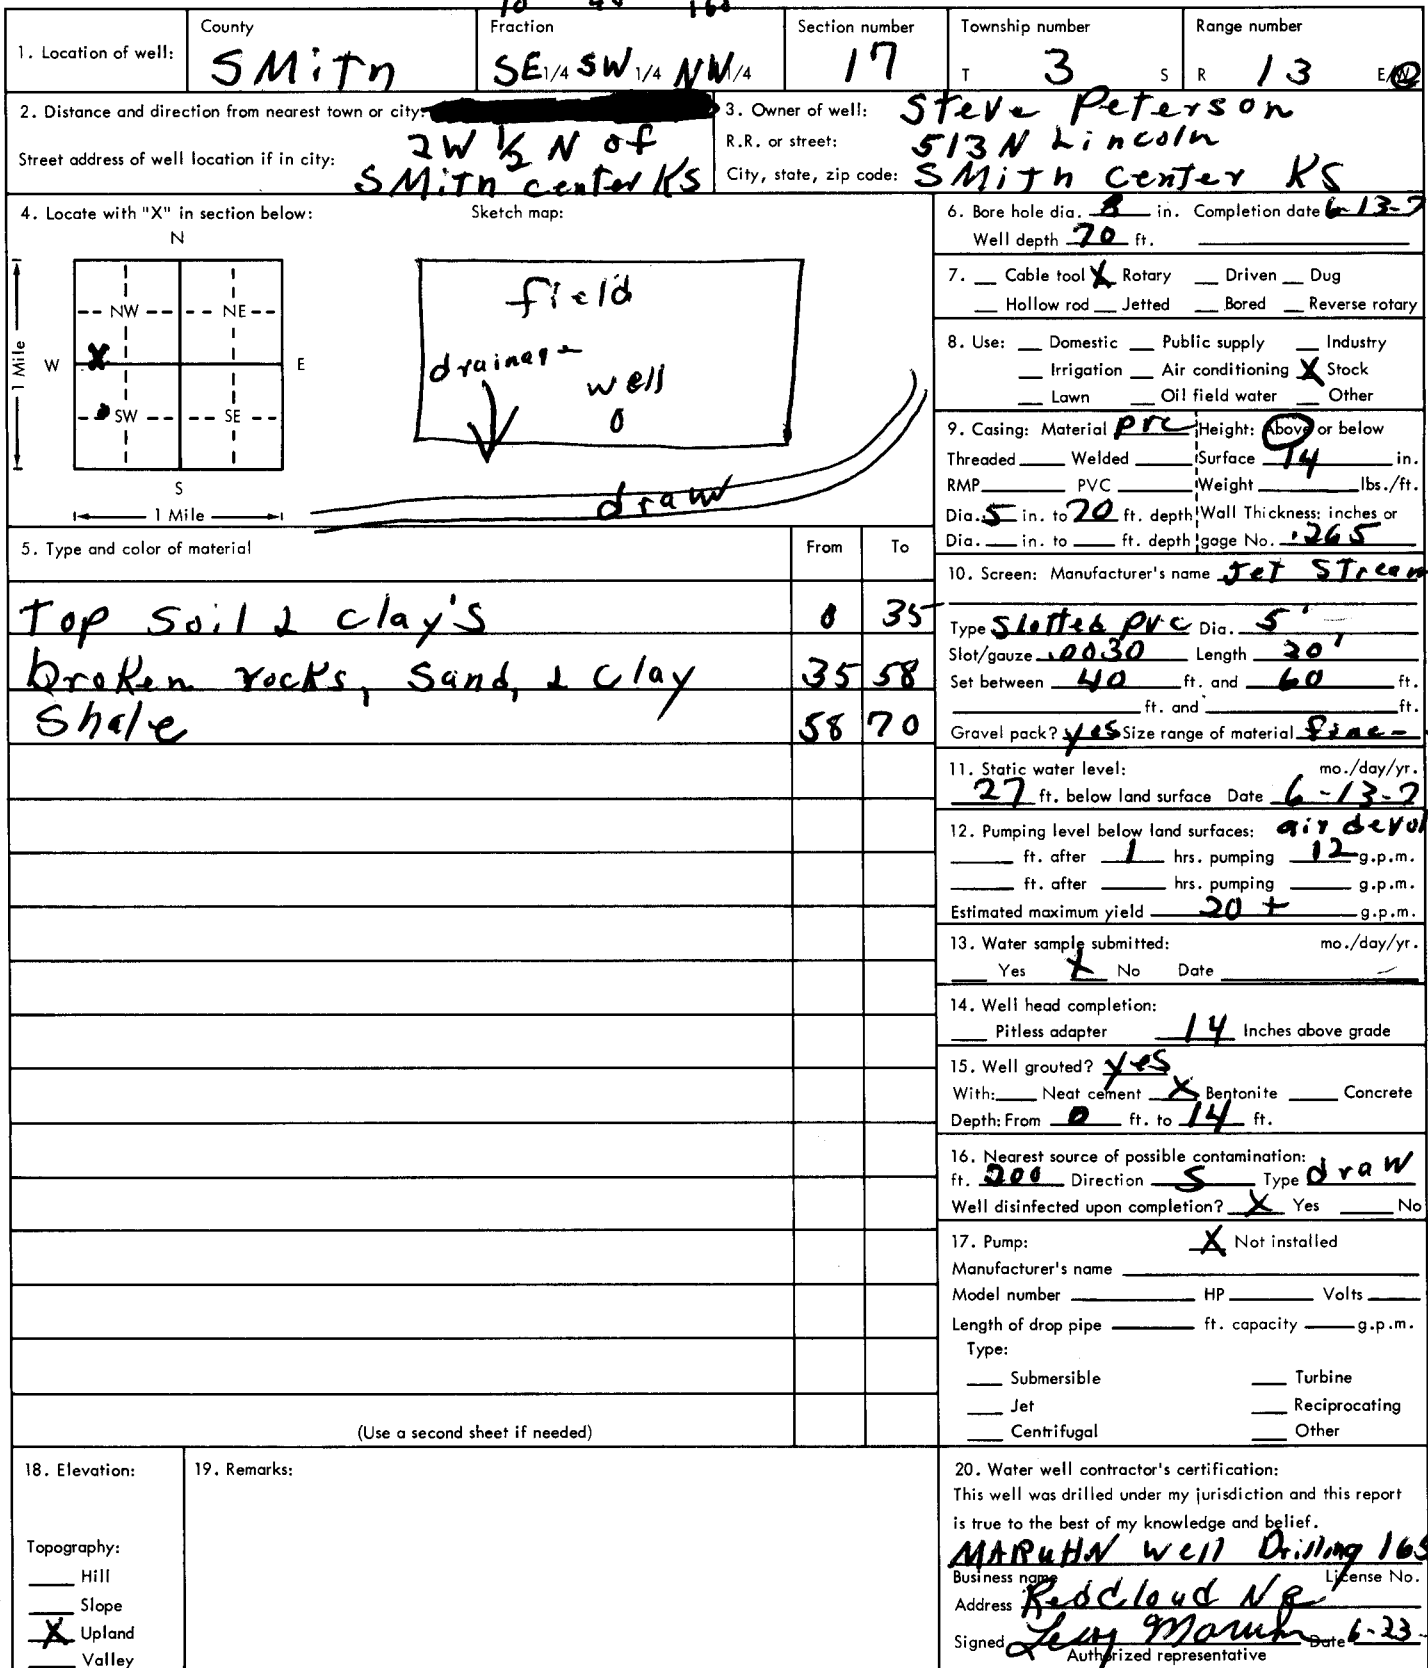 10 40 160
1. Location of well: County SMith Fraction SE 1/4 SW 1/4 NW 1/4 Section number 17 Township number T 3 S Range number R 13 E/W
2. Distance and direction from nearest town or city:
2W 1/2 N of
Street address of well location if in city:
SMith center KS
3. Owner of well: Steve Peterson
R.R. or street: 513 N Lincoln
City, state, zip code: SMith Center KS
4. Locate with "X" in section below:
N
NW NE
W X E
SW SE
S
1 Mile
1 Mile
Sketch map:
field
drainage
well
0
draw
5. Type and color of material From To
Top Soil & Clay's 0 35
broken rocks, Sand, & Clay 35 58
Shale 58 70
(Use a second sheet if needed)
6. Bore hole dia. 8 in. Completion date 6-13-7
Well depth 70 ft.
7. Cable tool X Rotary Driven Dug
Hollow rod Jetted Bored Reverse rotary
8. Use: Domestic Public supply Industry
Irrigation Air conditioning X Stock
Lawn Oil field water Other
9. Casing: Material pvc Height: Above or below
Threaded Welded Surface 14 in.
RMP PVC Weight lbs./ft.
Dia. 5 in. to 70 ft. depth Wall Thickness: inches or
Dia. in. to ft. depth gage No. .265
10. Screen: Manufacturer's name Jet Stream
Type Slotted pvc Dia. 5'
Slot/gauze .0030 Length 20'
Set between 40 ft. and 60 ft.
ft. and ft.
Gravel pack? yes Size range of material fine
11. Static water level: mo./day/yr.
27 ft. below land surface Date 6-13-7
12. Pumping level below land surfaces: air devol
ft. after 1 hrs. pumping 12 g.p.m.
ft. after hrs. pumping g.p.m.
Estimated maximum yield 20 + g.p.m.
13. Water sample submitted: mo./day/yr.
Yes X No Date
14. Well head completion:
Pitless adapter 14 Inches above grade
15. Well grouted? yes
With: Neat cement X Bentonite Concrete
Depth: From 0 ft. to 14 ft.
16. Nearest source of possible contamination:
ft. 200 Direction S Type draw
Well disinfected upon completion? X Yes No
17. Pump: X Not installed
Manufacturer's name
Model number HP Volts
Length of drop pipe ft. capacity g.p.m.
Type:
Submersible Turbine
Jet Reciprocating
Centrifugal Other
18. Elevation:
Topography:
Hill
Slope
X Upland
Valley
19. Remarks:
20. Water well contractor's certification:
This well was drilled under my jurisdiction and this report
is true to the best of my knowledge and belief.
MARUHN Well Drilling 165
Business name License No.
Address Redcloud Ne
Signed Maruhn Date 6-23-
Authorized representative